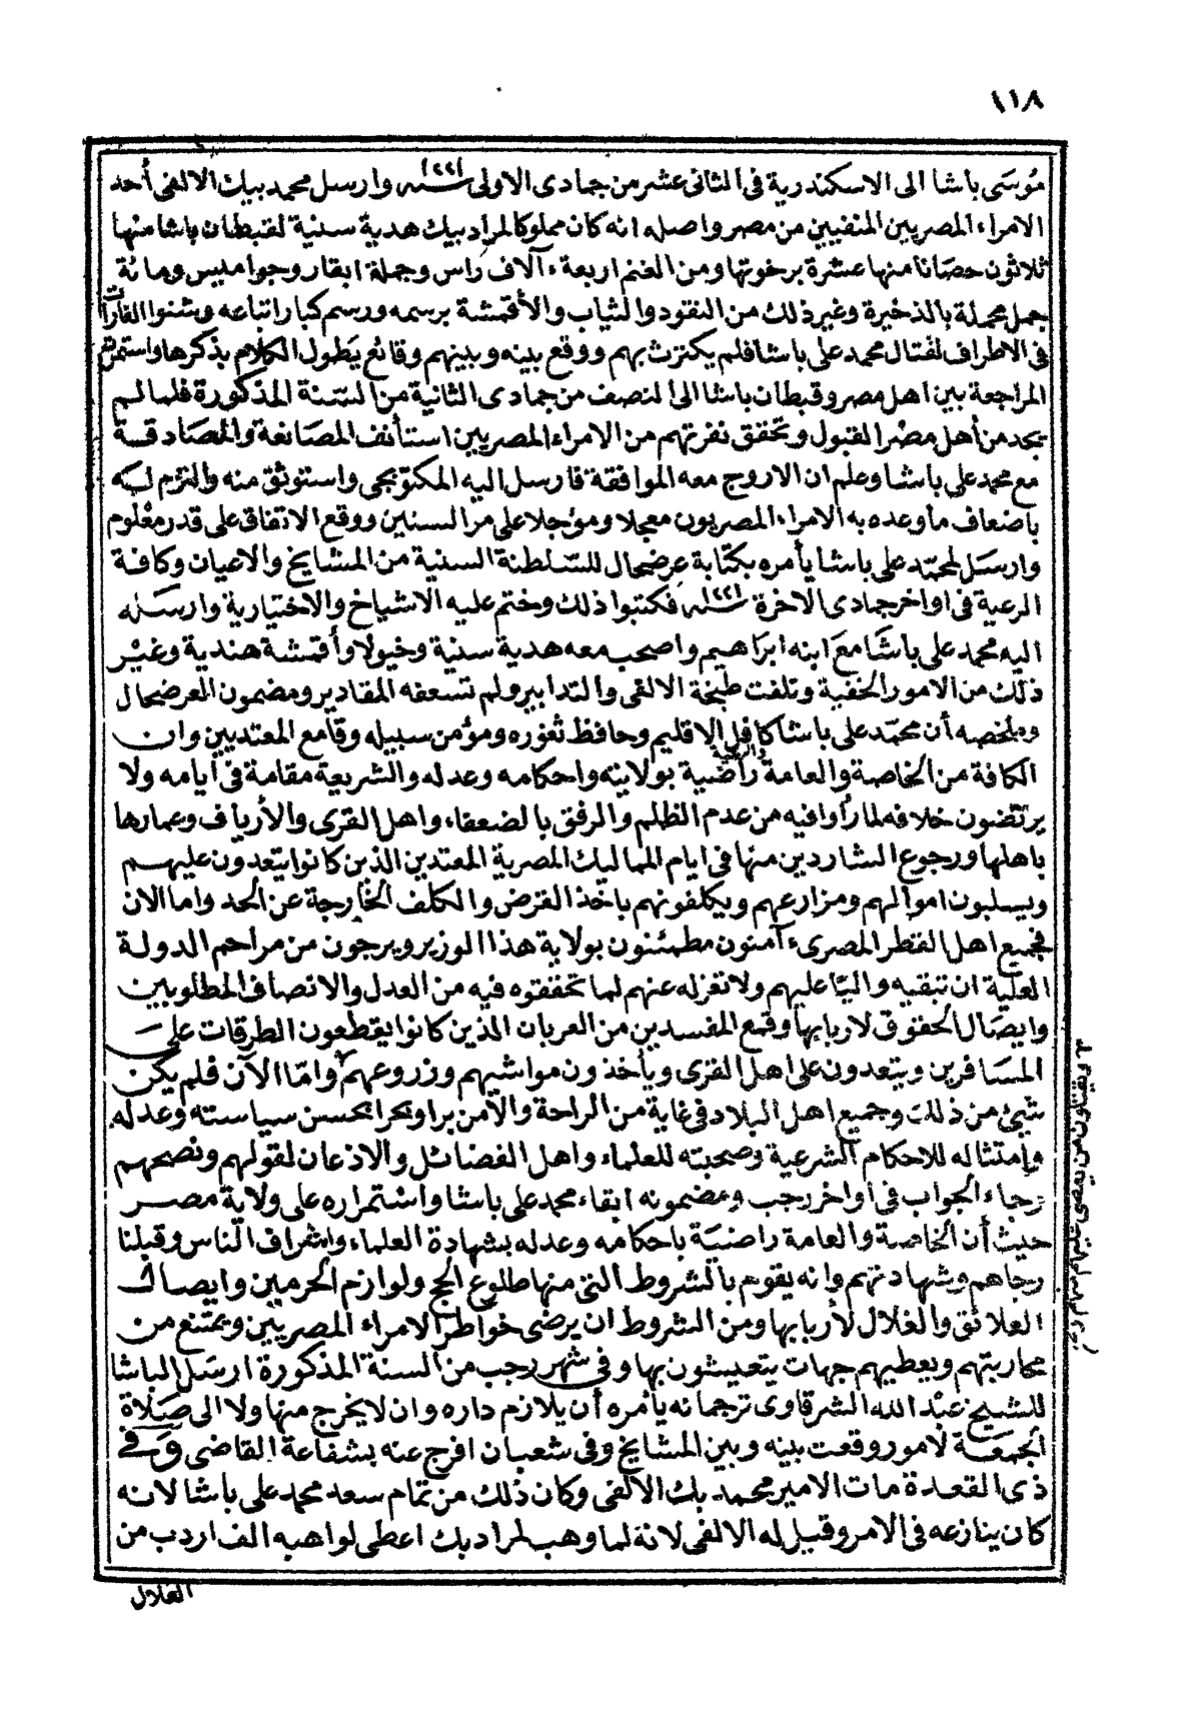 ١١٨
موسى باشا الى الاسكندرية فى الثانى عشر من جمادى الاولى سنة ١٢٢١ وارسل محمد بيك الالفى أحد
الامراء المصريين المنفيين من مصر واصله انه كان مملوكا لمراد بيك هدية سنية لقبطان باشا منها
ثلاثون حصانا منها عشرة برخوتها ومن الغنم اربعة ءآلاف رأس وجملة ابقار وجواميس ومائة
جمل محملة بالذخيرة وغير ذلك من النقود والثياب والأقمشة برسمه ورسم كبار اتباعه وشنوا الغارات
فى الاطراف لقتال محمد على باشا فلم يكترث بهم ووقع بينه وبينهم وقائع يطول الكلام بذكرها واستمرت
المراجعة بين اهل مصر وقبطان باشا الى النصف من جمادى الثانية من السنة المذكورة فلما لم
يجد من أهل مصر القبول وتحقق نفرتهم من الامراء المصريين استأنف المصانعة والمصادقة
مع محمد على باشا وعلم ان الاروج معه الموافقة فارسل اليه المكتوبجى واستوثق منه والتزم له
باضعاف ما وعده به الامراء المصريون معجلا ومؤجلا على مر السنين ووقع الاتفاق على قدر معلوم
وارسل لمحمد على باشا يأمره بكتابة عرضحال للسلطنة السنية من المشايخ والاعيان وكافة
الرعية فى اواخر جمادى الاخرة سنة ١٢٢١ فكتبوا ذلك وختم عليه الاشياخ والاختيارية وارسله
اليه محمد على باشا مع ابنه ابراهيم واصحب معه هدية سنية وخيولا وأقمشة هندية وغير
ذلك من الامور الخفية وتلفت طبخة الالفى والتدابير ولم تسعفه المقادير ومضمون العرضحال
وملخصه أن محمد على باشا كافل الاقليم وحافظ ثغوره ومؤمن سبيله وقامع المعتديين وان
الكافة من الخاصة والعامة والرعية راضية بولايته واحكامه وعدله والشريعة مقامة فى أيامه ولا
يرتضون خلافه لما رأوا فيه من عدم الظلم والرفق بالضعفاء واهل القرى والأرياف وعمارها
باهلها ورجوع الشاردين منها فى ايام المماليك المصرية المعتدين الذين كانوا يتعدون عليهم
ويسلبون اموالهم ومزارعهم ويكلفونهم باخذ الفرض والكلف الخارجة عن الحد واما الان
فجميع اهل القطر المصرى ءآمنون مطمئنون بولاية هذا الوزير ويرجون من مراحم الدولة
العلية ان تبقيه واليا عليهم ولا تعزله عنهم لما تحققوه فيه من العدل والانصاف المطلوبين
وايصال الحقوق لاربابها وقمع المفسدين من العربان الذين كانوا يقطعون الطرقات على
المسافرين ويتعدون على اهل القرى ويأخذون مواشيهم وزروعهم واما الآن فلم يكن
شيئ من ذلك وجميع اهل البلاد فى غاية من الراحة والأمن برا وبحرا بحسن سياسته وعدله
وامتثاله للاحكام الشرعية ومحبته للعلماء واهل الفضائل والاذعان لقولهم ونصحهم
وجاء الجواب فى اواخر رجب ومضمونه ابقاء محمد على باشا واستمراره على ولاية مصر
حيث أن الخاصة والعامة راضية باحكامه وعدله بشهادة العلماء واشراف الناس وقبلنا
رجاهم وشهادتهم وانه يقوم بالشروط التى منها طلوع الحج ولوازم الحرمين وايصال
العلائق والغلال لأربابها ومن الشروط ان يرضى خواطر الامراء المصريين ويمتنع من
محاربتهم ويعطيهم جهات يتعيشون بها وفى شهر رجب من السنة المذكورة ارسل الباشا
للشيخ عبد الله الشرقاوى ترجمانه يأمره أن يلازم داره وان لا يخرج منها ولا الى صلاة
الجمعة لامور وقعت بينه وبين المشايخ وفى شعبان افرج عنه بشفاعة القاضى وفى
ذى القعدة مات الامير محمد بك الالفى وكان ذلك من تمام سعد محمد على باشا لانه
كان ينازعه فى الامر وقيل له الالفى لانه لما وهب لمراد بك اعطى لواهبه الف اردب من
الغلال